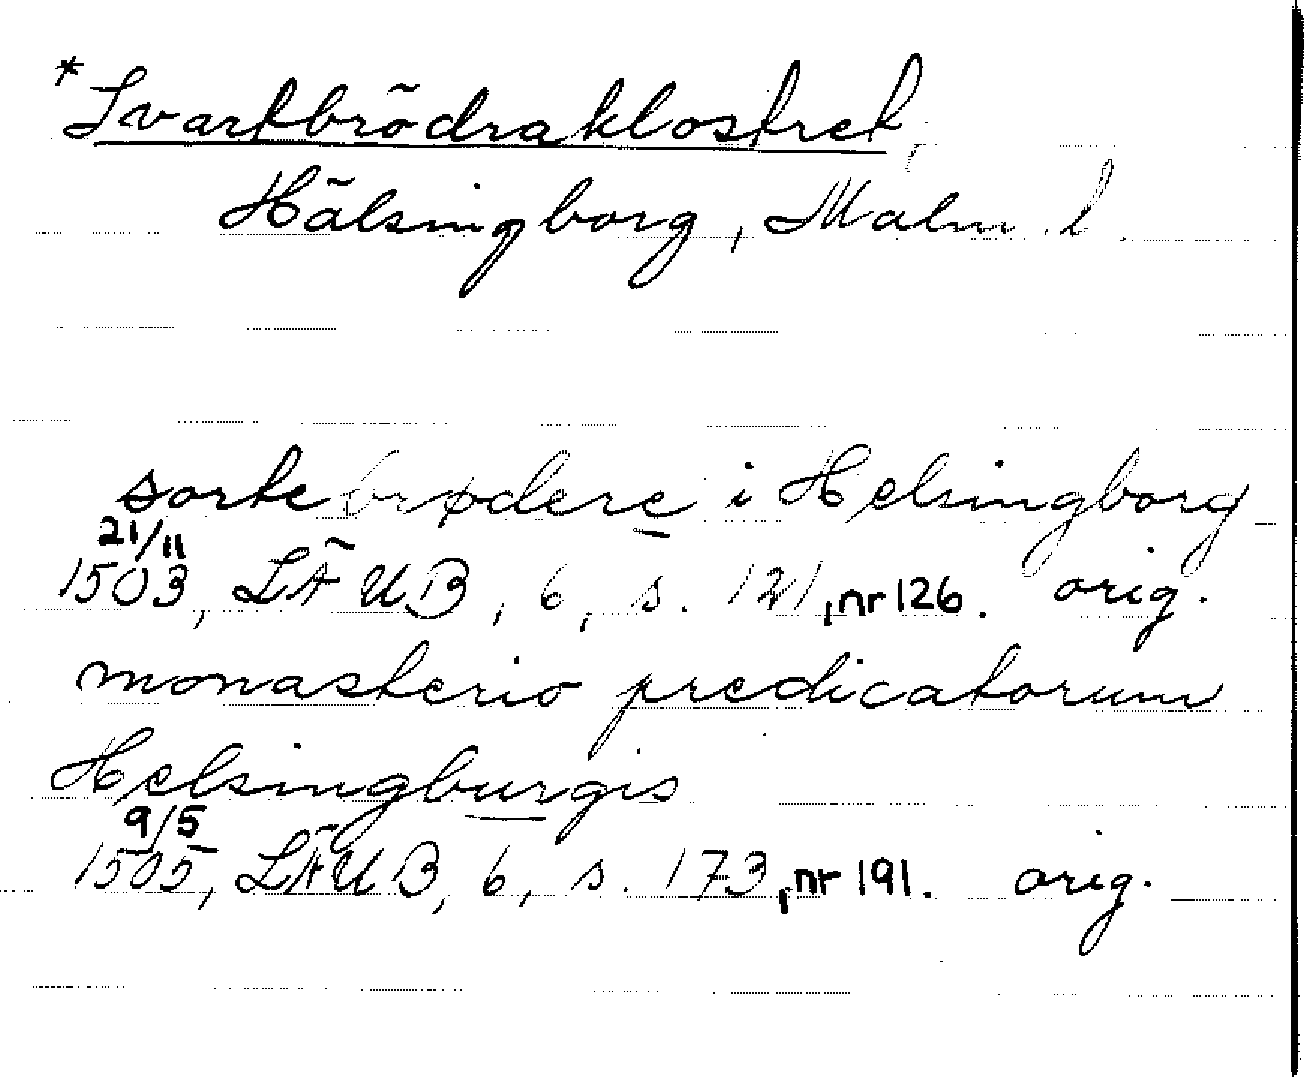 *Svartbrödraklostret,
Hälsingborg, Malm. l.
sorte brødere i Helsingborg
21/11
1503, LÄUB, 6, s. 121, nr 126. orig.
monasterio predicatorum
Helsingburgis
9/5
1505, LÄUB, 6, s. 173, nr 191. orig.